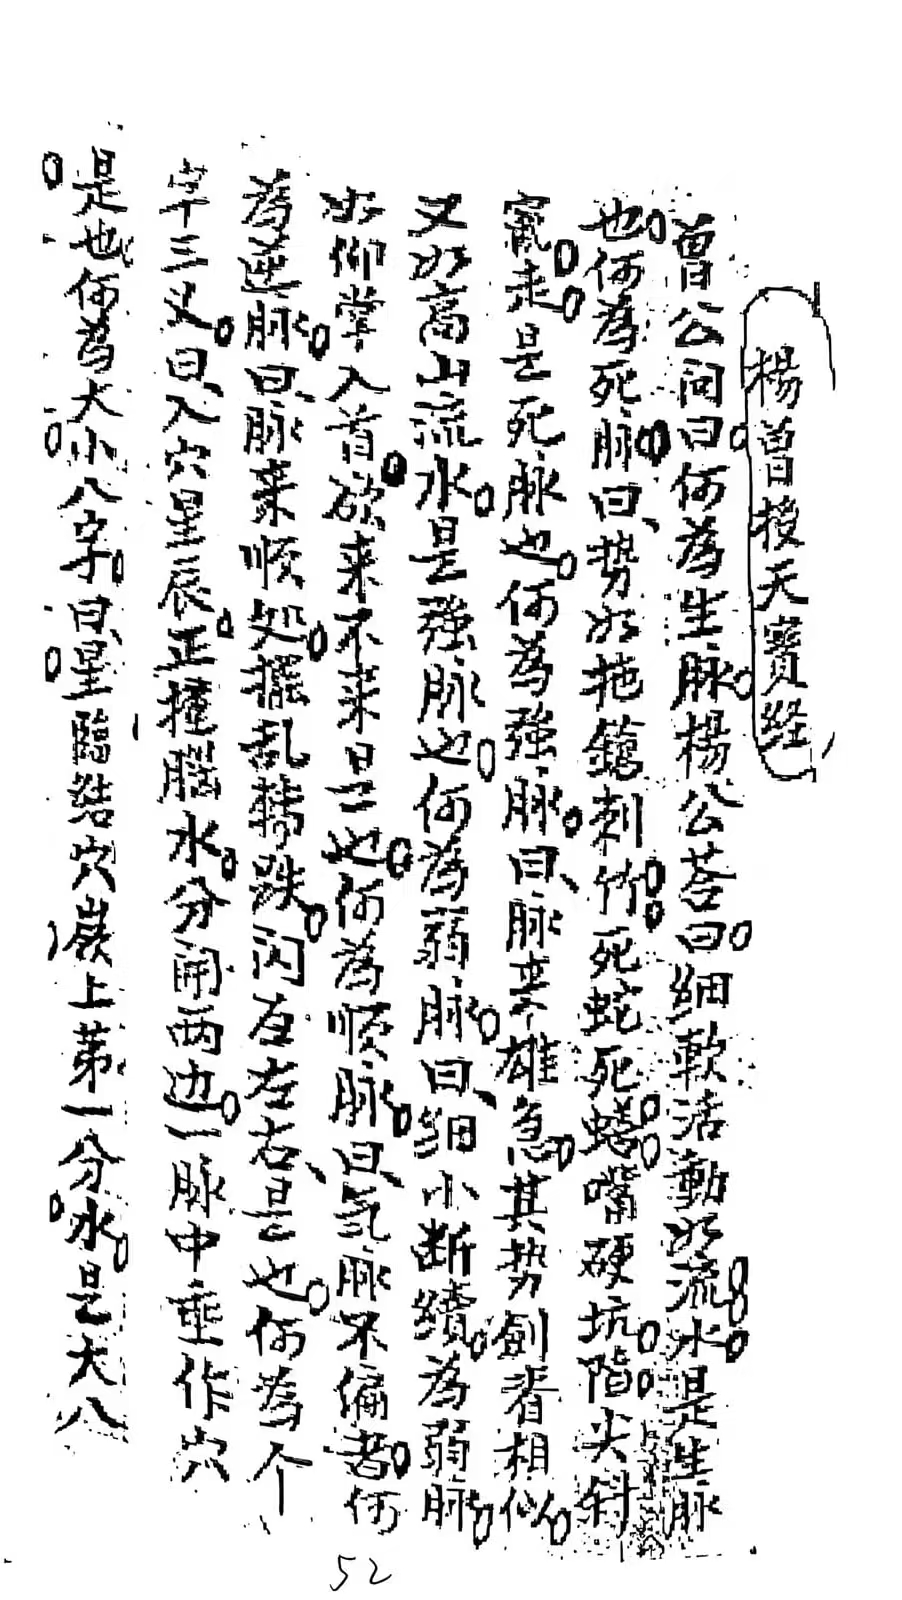 楊曾授天寶经
曾公问曰何為生脉楊公荅曰细軟活動如流水是生脉
也何為死脉曰势如拖鎗刺竹死蛇死鳝嘴硬坑陷尖斜
竄走是死脉也何為強脉曰脉来雄急其势劍脊相似
又如高山流水是強脉也何為弱脉曰细小断續為弱脉
如仰掌入首欲来不来是也何為順脉曰氣脉不偏者何
為逆脉曰脉来順处擺乱轉跌闪互左右是也何為个
字三义曰入穴星辰正撞腦水分開两边一脉中垂作穴
是也何為大小八字曰星臨结穴嶽上第一分水是大八
52